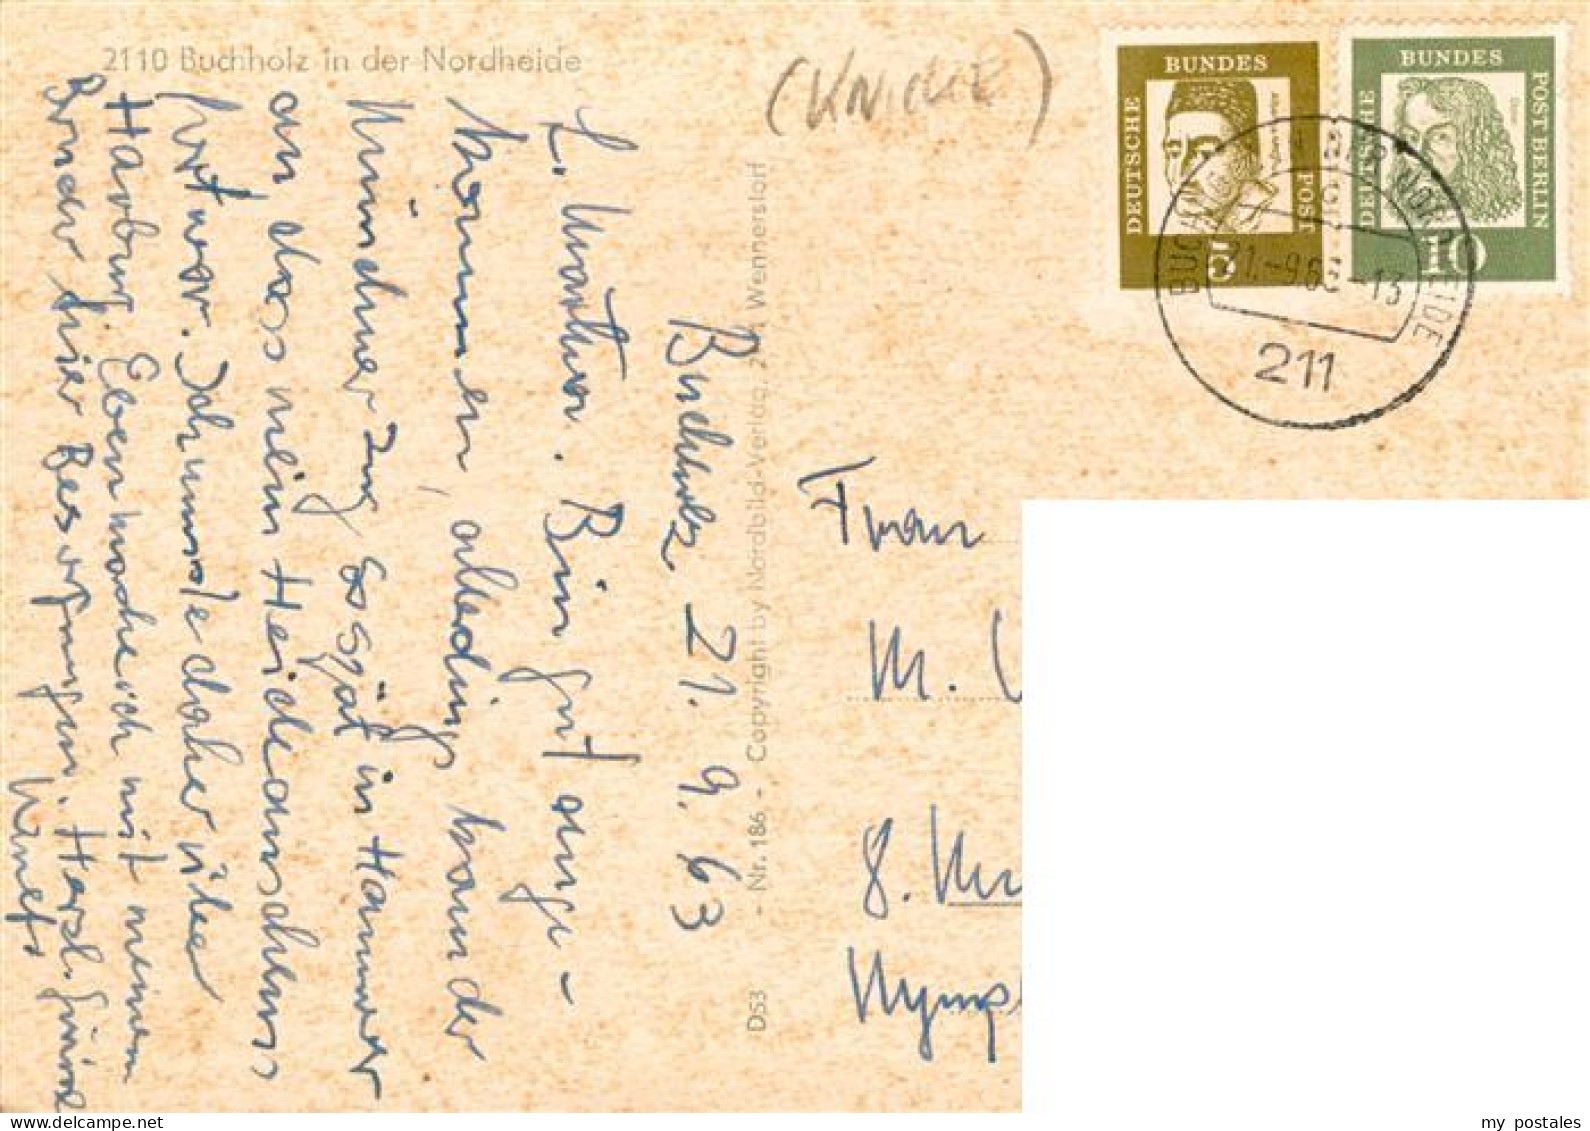 2110 Buchholz in der Nordheide
(KNICKE)
DEUTSCHE BUNDES POST
5
DEUTSCHE BUNDES POST BERLIN
10
BUCHHOLZ IN DER NORDHEIDE
21.-9.63-13
211
Buchholz 21. 9. 63
L. Martha. Bin gut ange-
kommen, allerdings kam der
Münchner Zug so spät in Hannover
an, dass mein Heideanschluss
fort war. Ich musste daher über
Harburg. Eben mache ich mit meinem
Bruder hier Besorgungen. Herzl. Grüsse
DS3 - Nr. 186 - Copyright by Nordbild-Verlag, Wennerstorf
Frau
M.
8. 
Nymp
my postales